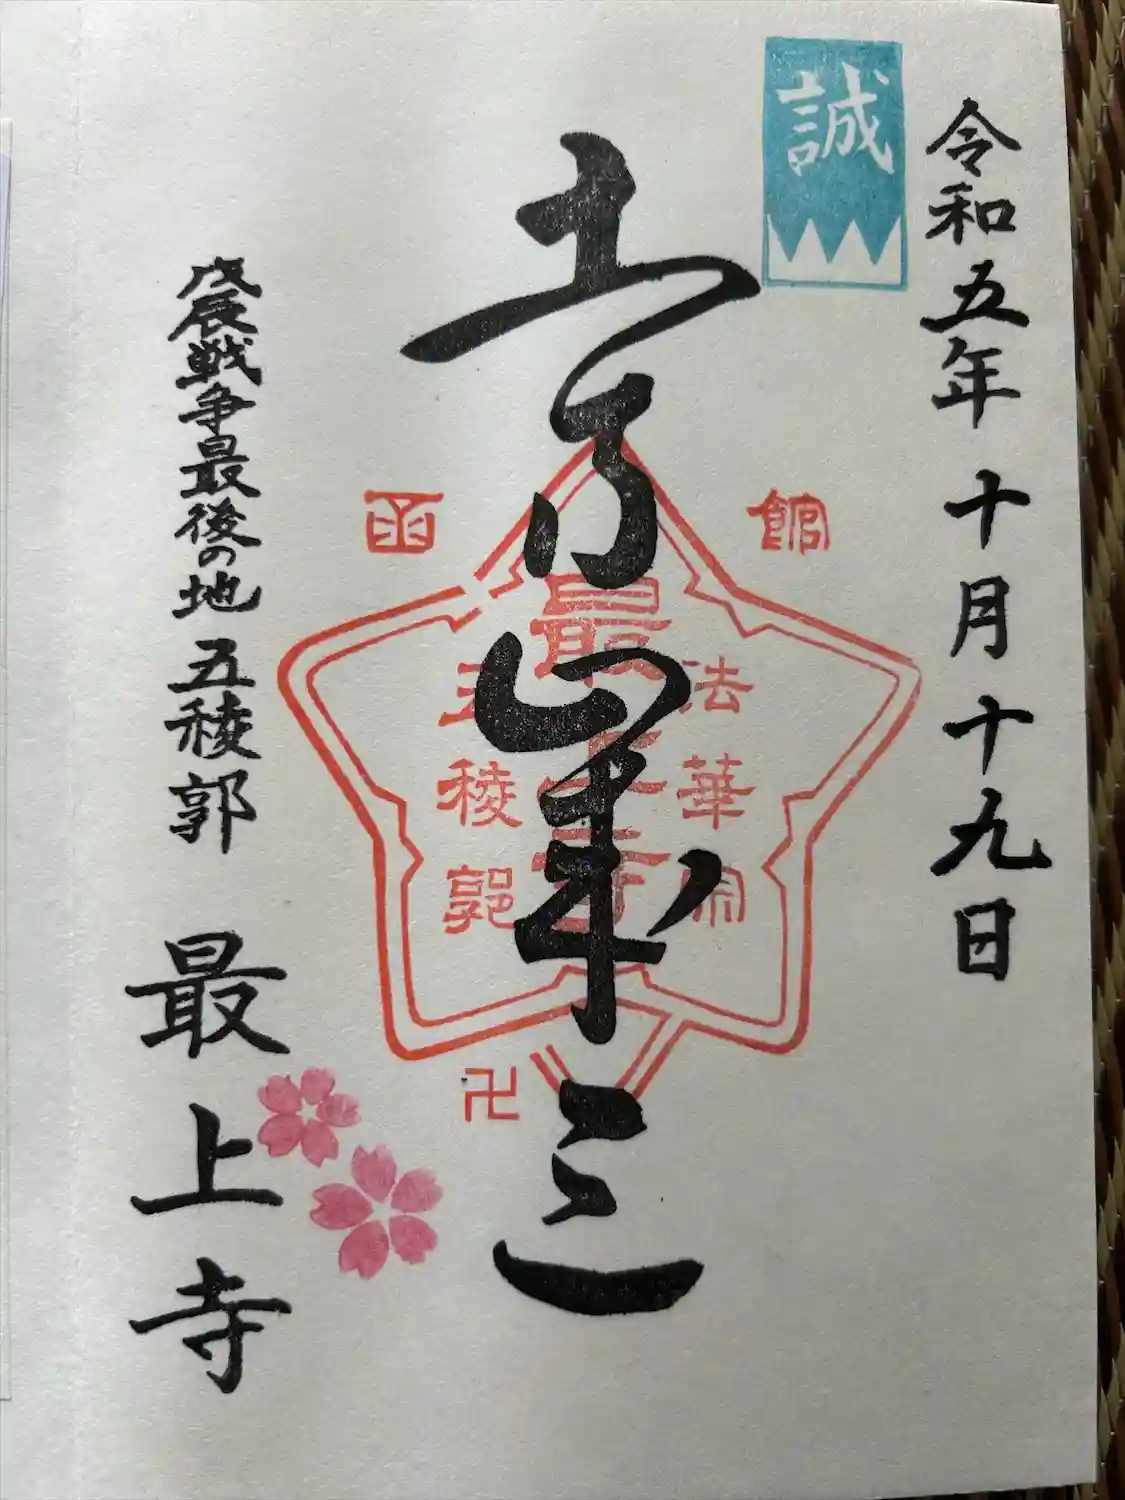 令和五年十月十九日
誠
土方歳三
函館
法華宗
最上寺
五稜郭
卍
戊辰戦争最後の地 五稜郭
最上寺